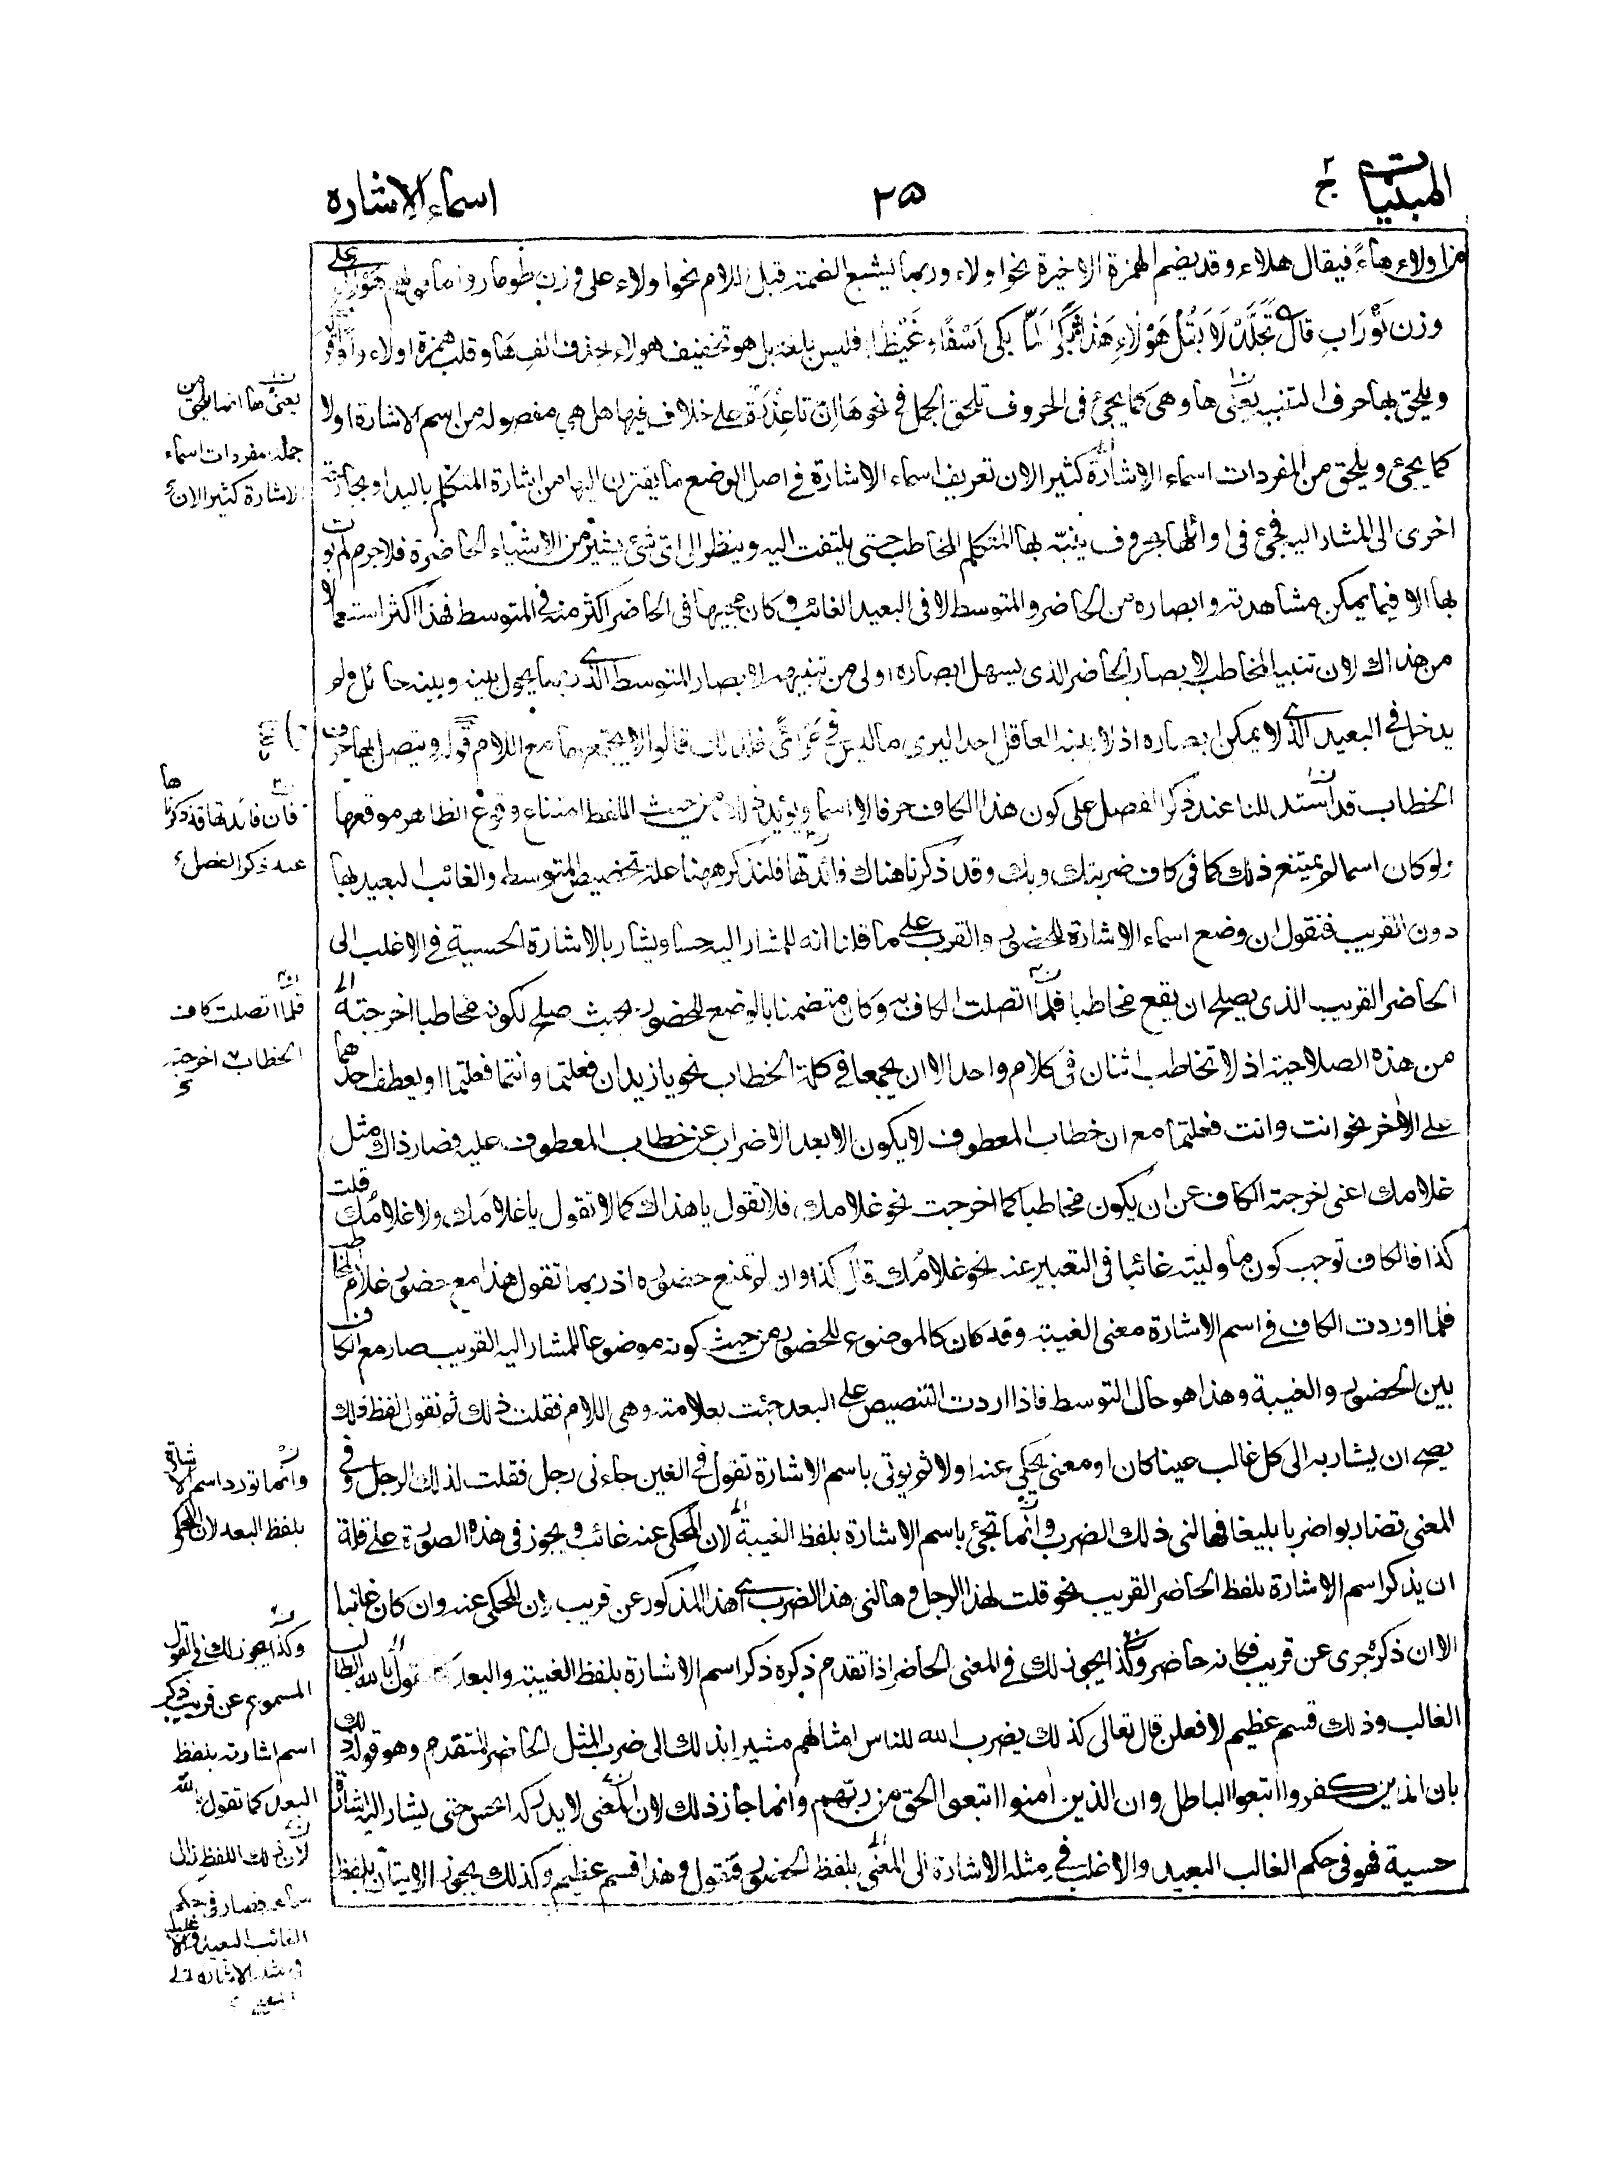 المبنيات
ج ٢
٣٥
اسماء الاشارة
من اولاء هاءً فيقال هلاء وقد يضم الهمزة الاخيرة نحو اولاء وربما يشبع الضمة قبل اللام نحو اولاء على وزن طومار واما قولهم هَوْلاءِ على
وزن تَوْرَابِ قال تَجَلَّدْ لَا يَقُلْ هَوْلاءِ هَذَا بَكَى لَمَّا بَكَى اَسَفًا وغَيْظًا فليس بلغة بل هو تخفيف هولاء بحذف الف ها وقلب همزة اولاء واوا
ويلحق بها حرف التنبيه يعنى ها وهى كما يجئ فى الحروف تلحق الجمل فى نحو هَا اِنّ تا عِذْرَةٌ على خلاف فيها هل هي مفصولة من اسم الاشارة اولا
كما يجئ ويلحق من المفردات اسماء الاشارة كثيرا لان تعريف اسماء الاشارة فى اصل الوضع ما يقترن اليها من اشارة المتكلم باليد او بجارحة
اخرى الى المشار اليه فجئ فى اوائلها بحروف ينبّه بها المتكلم المخاطب حتى يلتفت اليه وينظر الى اى شئ يشير من الاشياء الحاضرة فلا جرم لم يوت
بها الا فيما يمكن مشاهدته وابصاره من الحاضر والمتوسط لا فى البعيد الغائب وكان مجيئها فى الحاضر اكثر منه فى المتوسط فهذا اكثر استعمالا
من هذاك لان تنبيه المخاطب لابصار الحاضر الذى يسهل ابصاره اولى من تنبيهه لابصار المتوسط الذى ربما يحول بينه وبينه حائل ولم
يدخل فى البعيد الذى لا يمكن ابصاره اذ لا ينبه العاقل احدا ليرى ما ليس فى مرأئً فلذلك قالوا لا يجتمع ها مع اللام قوله ويتصل بها حرف
الخطاب قد استدللنا عند ذكر الفصل على كون هذا الكاف حرفا لا اسما ويؤيد من حيث اللفظ امتناع وقوع الظاهر موقعها
ولو كان اسما لم يمتنع ذلك كما فى كاف ضربتك وبك وقد ذكرنا هناك فائدتها فلنذكر ههنا علة تخصيص المتوسط والغائب البعيد بها
دون القريب فنقول ان وضع اسماء الاشارة للحضور والقرب على ما قلنا انه للمشار اليه حسا ويشار بالاشارة الحسية فى الاغلب الى
الحاضر القريب الذى يصلح ان يقع مخاطبا فلما اتصلت الكاف به وكان متضمنا بالوضع للحضور بحيث صلح لكونه مخاطبا اخرجته
من هذه الصلاحية اذ لا تخاطب اثنان فى كلام واحد الا ان يجمعا فى كلمة الخطاب نحو يا زيدان فعلتما وانتما فعلتما او يعطف احدهما
على الاخر نحو انت وانت فعلتما مع ان خطاب المعطوف لا يكون الا بعد الاضراب عن خطاب المعطوف عليه فصار ذاك مثل
غلامك اعنى اخرجته الكاف عن ان يكون مخاطبا كما اخرجت نحو غلامك فلا تقول يا هذاك كما لا تقول يا غلامَك ولا غلامُك قلت
كذا فالكاف توجب كون ما وليته غائبا فى التعبير عنه نحو غلامُك قال كذا وان لم تمنع حضوره اذ ربما تقول هذا مع حضور غلام المخاطب
فلما اوردت الكاف فى اسم الاشارة معنى الغيبة وقد كان كالموضوع للحضور من حيث كونه موضوعا للمشار اليه القريب صار مع الكاف
بين الحضور والغيبة وهذا هو حال التوسط فاذا اردت التنصيص على البعد جئت بعلامته وهى اللام فقلت ذلك ثم نقول لفظ ذلك
يصح ان يشار به الى كل غائب عينا كان او معنى يحكى عنه اولا ثم يوتى باسم الاشارة تقول فى العين جاءنى رجل فقلت لذلك الرجل وفى
المعنى تضاربوا ضربا بليغا فهالنى ذلك الضرب وانما تجئ باسم الاشارة بلفظ الغيبة لان المحكى عنه غائب ويجوز فى هذه الصورة على قلة
ان يذكر اسم الاشارة بلفظ الحاضر القريب نحو قلت لهذا الرجل وهالنى هذا الضرب اى هذا المذكور عن قريب لان المحكى عنه وان كان غائبا
الا ان ذكره جرى عن قريب فكانه حاضر وكذا يجوز لك فى المعنى الحاضر اذا تقدم ذكره ذكر اسم الاشارة بلفظ الغيبة والبعد تقول بالله الطالب
الغالب وذلك قسم عظيم لافعلن قال تعالى كذلك يضرب الله للناس امثالهم مشيرا بذلك الى ضرب المثل الحاضر المتقدم وهو قوله ذلك
بان الذين كفروا اتبعوا الباطل وان الذين آمنوا اتبعوا الحق من ربهم وانما جاز ذلك لان المعنى لا يدركه الحس حتى يشار اليه اشارة
حسية فهو فى حكم الغائب البعيد والاغلب فى مثله الاشارة الى المعنى بلفظ الحضور فتقول وهذا قسم عظيم وكذلك يجوز الاتيان بلفظ
يعنى ها انما يلحق من
جملة مفردات اسماء
الاشارة كثيرا لان
فان فائدتها قد ذكرناها
عند ذكر الفصل
فلما اتصلت كاف
الخطاب به اخرجته
وانما تورد اسم الاشارة
بلفظ البعد لان المحكى
وكذا يجوز لك فى القول
المسموع عن قريب ذكر
اسم اشارته بلفظ
البعد كما تقول بالله
لان ذلك اللفظ زال
سماعه فصار فى حكم
الغائب البعيد والاغلب
فى مثله الاشارة الى